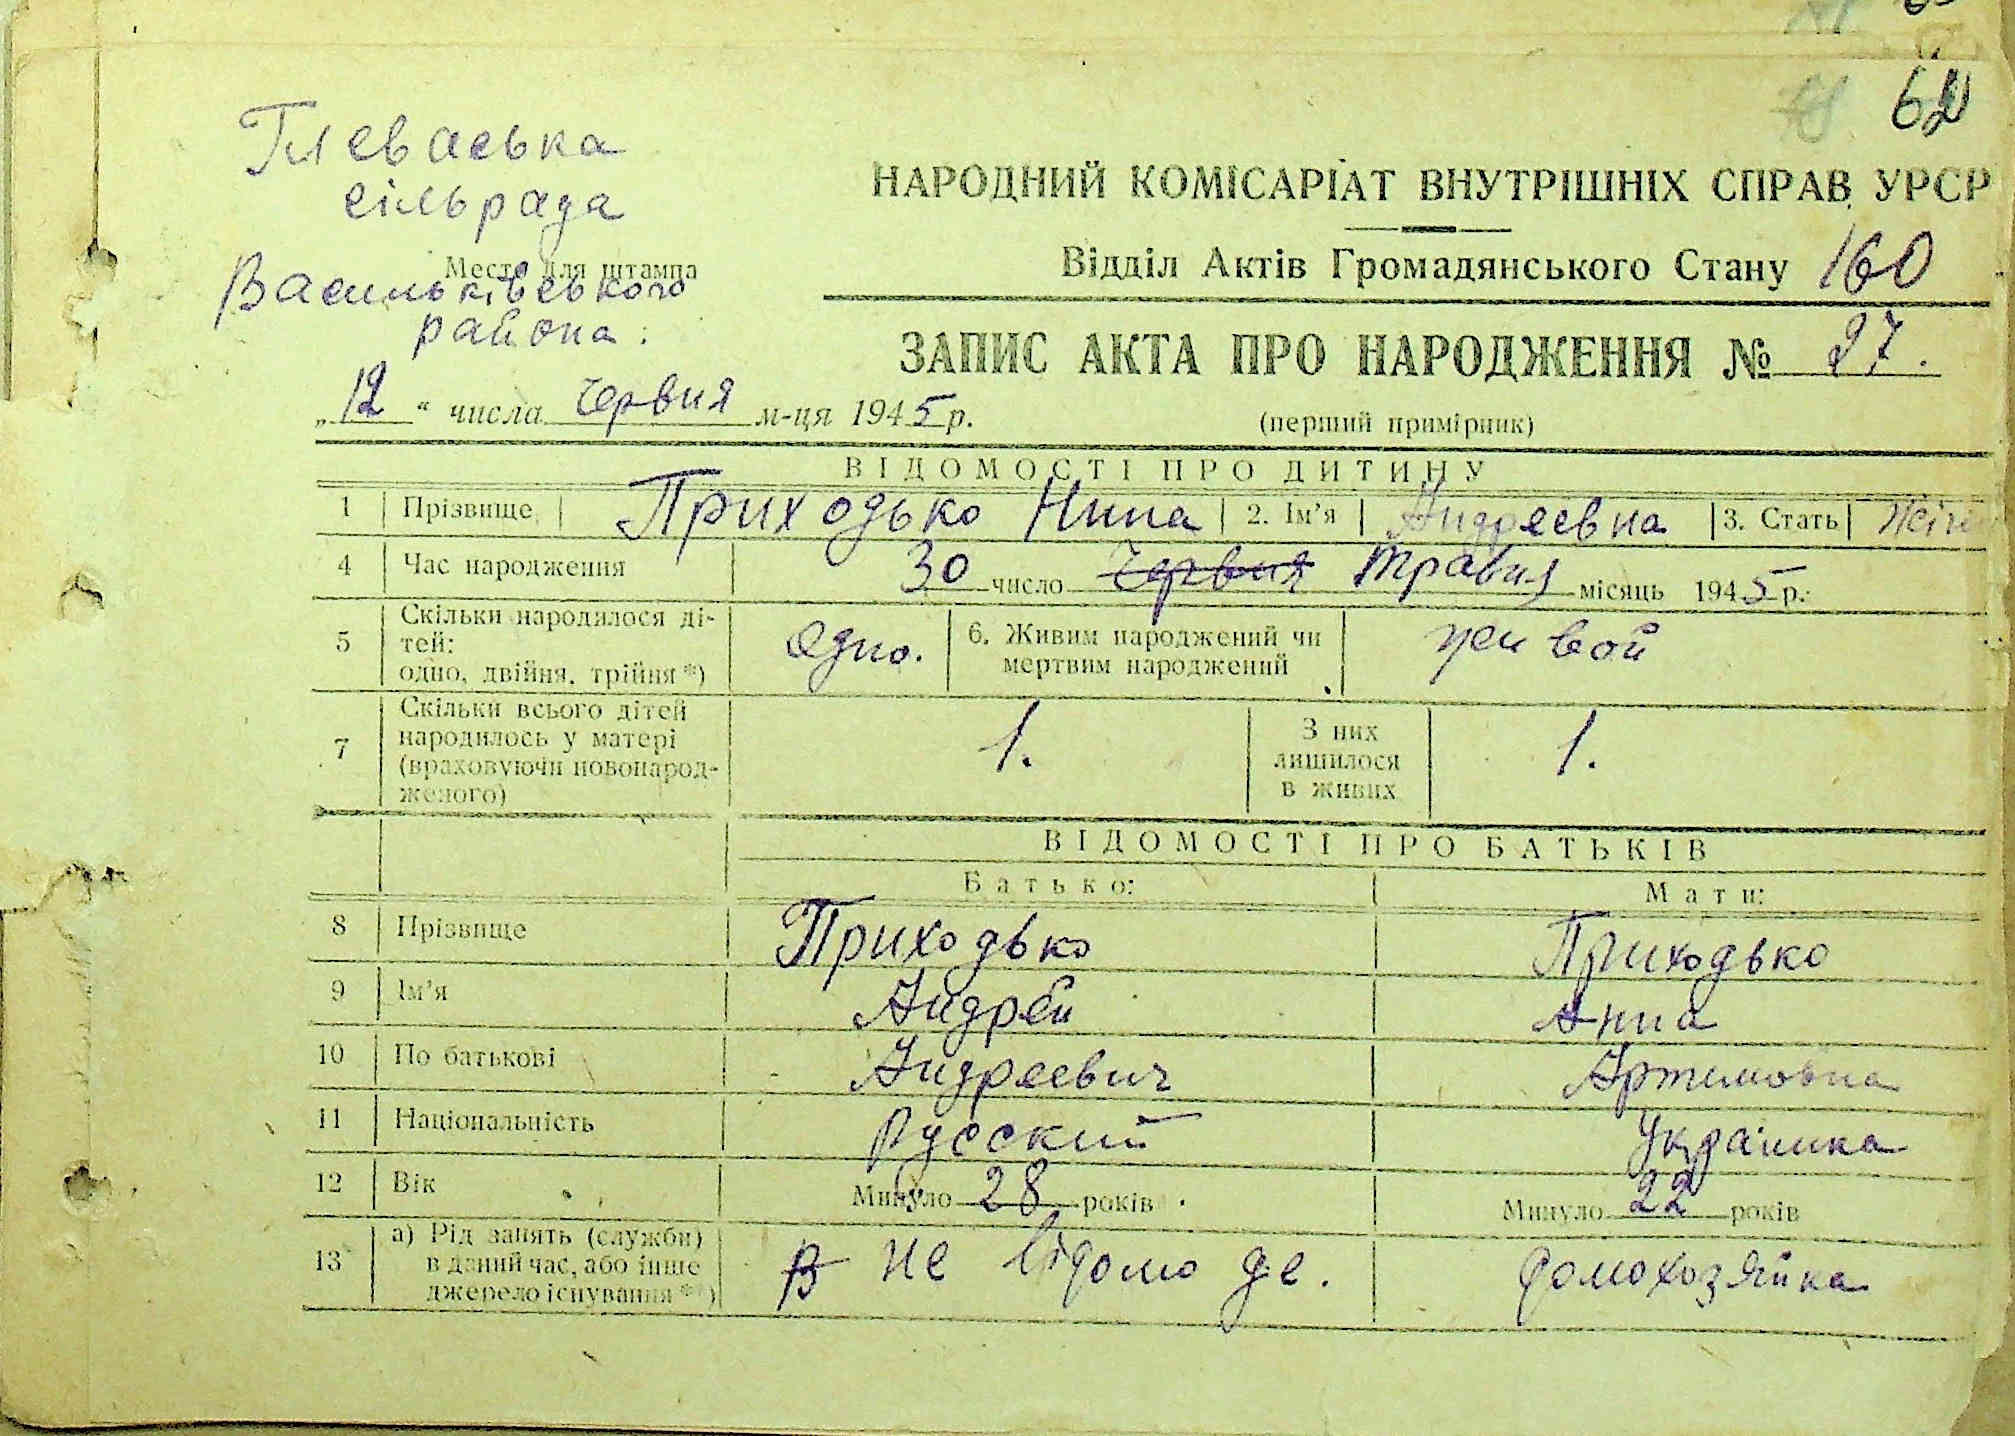 62
Глеваська
сільрада
НАРОДНИЙ КОМІСАРІАТ ВНУТРІШНІХ СПРАВ УРСР
Место для штампа
Васильківського
района.
Відділ Актів Громадянського Стану 160
ЗАПИС АКТА ПРО НАРОДЖЕННЯ № 27.
„12“ числа червня м-ця 1945 р.
(перший примірник)
ВІДОМОСТІ ПРО ДИТИНУ
1 Прізвище Приходько Нина 2. Ім'я Андреевна 3. Стать
4 Час народження 30 число червня травня місяць 1945 р.
5 Скільки народилося ді-
тей:
одно, двійня, трійня *) одно. 6. Живим народжений чи
мертвим народжений живой
7 Скільки всього дітей
народилось у матері
(враховуючи новонарод-
женого) 1. З них
лишилося
в живих 1.
ВІДОМОСТІ ПРО БАТЬКІВ
Батько: Мати:
8 Прізвище Приходько Приходько
9 Ім'я Андрей Анна
10 По батькові Андреевич Артемовна
11 Національність Русский Украинка
12 Вік Минуло 28 років Минуло 22 років
13 а) Рід занять (служби)
в даний час, або інше
джерело існування **) В не відомо де. домохозяйка